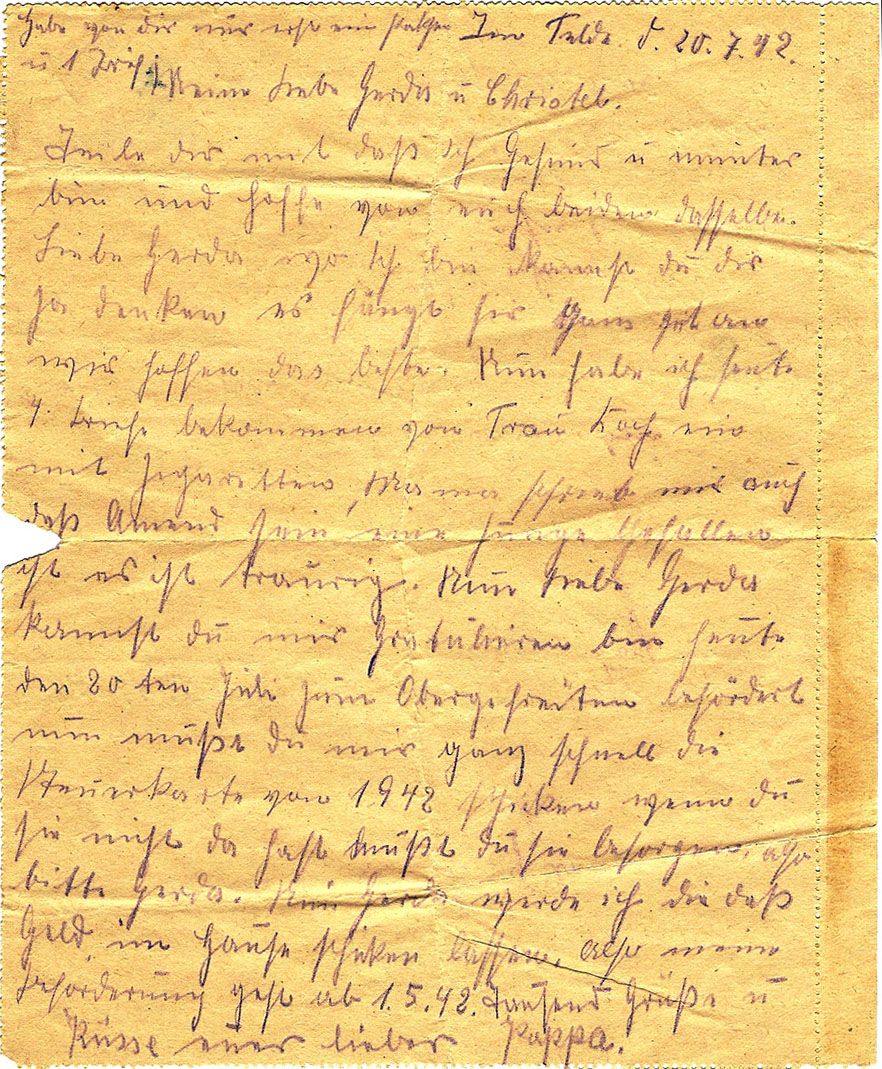 Habe von dir nur erst ein Paktchen Im Felde. d. 20.7.42.
u 1 Brief.
Meine Liebe Gerda u Christel.
Teile dir mit daß ich Gesund u munter
bin und hoffe von euch beiden dasselbe.
Liebe Gerda wo ich bin kannst du dir
ja denken es fängt hir ganz gut an
wir hoffen das beste. Nun habe ich heute
4. Briefe bekommen von Frau Koch ein
mit Zigaretten, Mama schrieb mir auch
daß Amend sein eine Junge Gefallen
ist es ist traurig. Nun Liebe Gerda
kannst du mir Gratulieren bin heute
den 20 ten Juli zum Obergefreiten befördert
nun mußt du mir ganz schnell die
Steuerkarte von 1942 schicken wenn du
sie nicht da hast mußt du sie besorgen, also
bitte Gerda. Nun Gerda werde ich die daß
Geld im Hause schicken lassen, also meine
Beförderung geht ab 1.5.42. Tausend Grüße u
Küsse euer lieber Pappa.